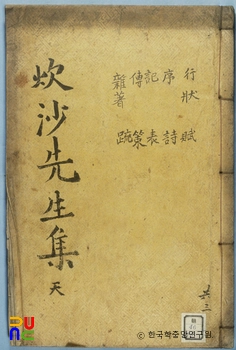 行狀 賦
序 詩
記 表
傳 策
雜著 䟽
炊沙先生集 天
共三
© 한국학중앙연구원